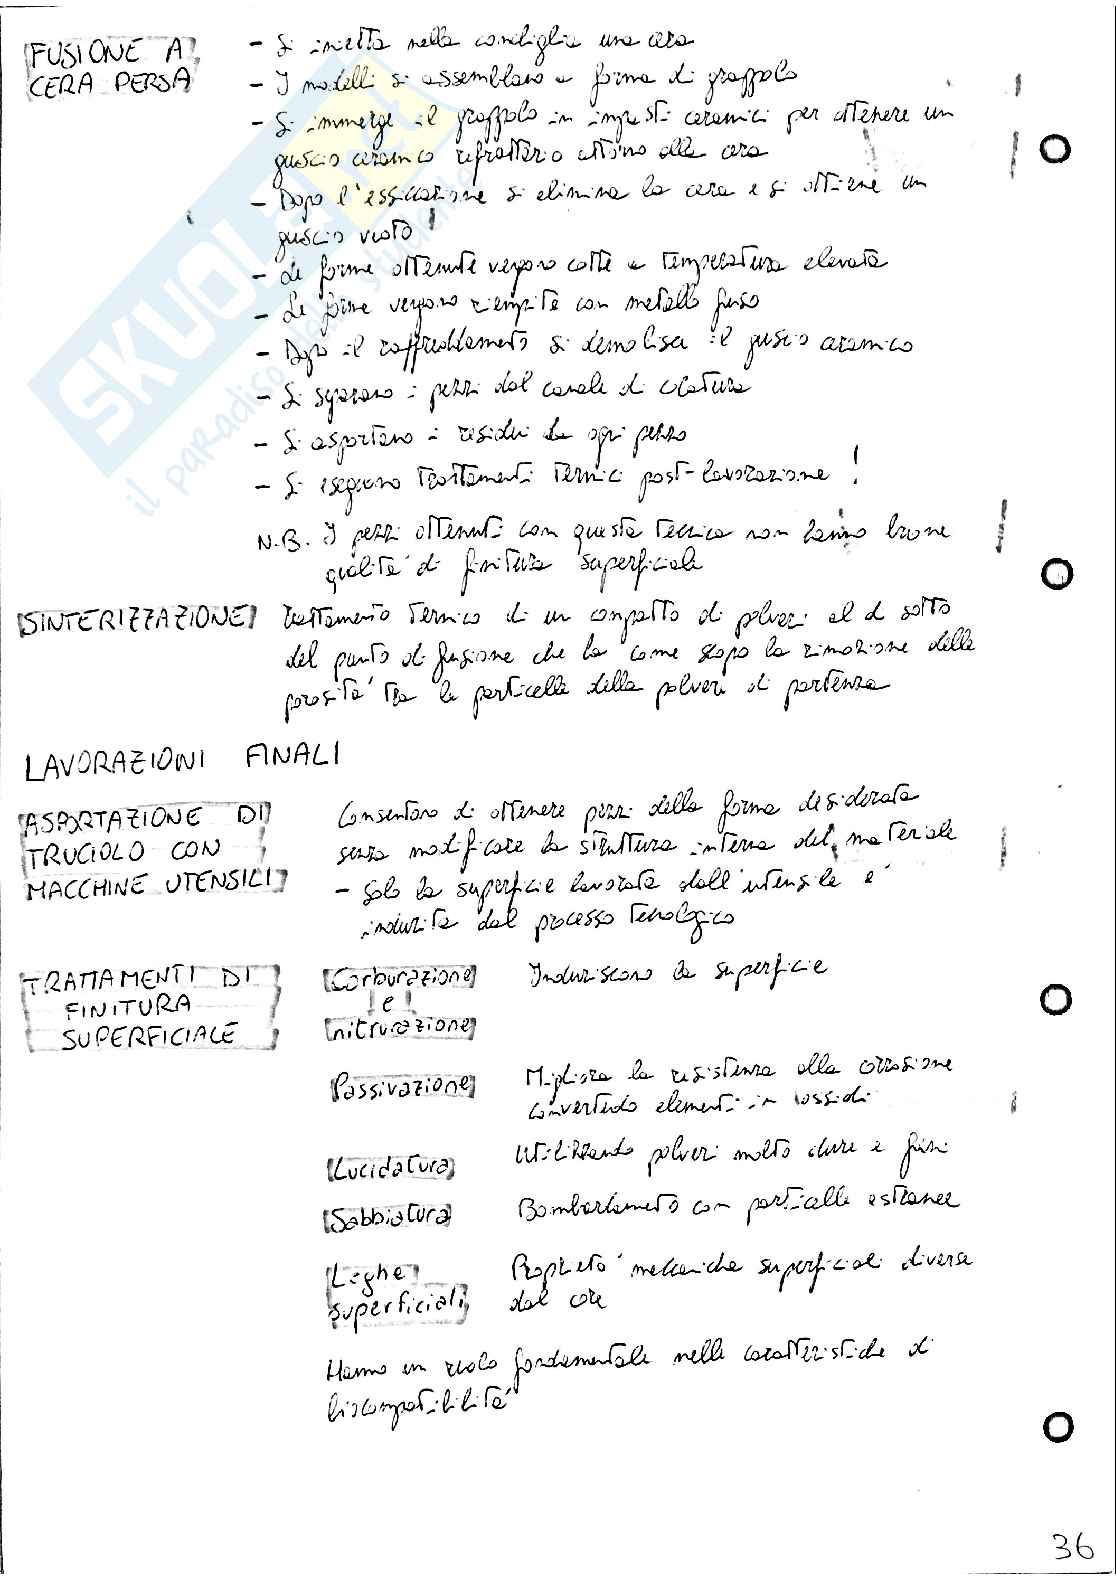 FUSIONE A
CERA PERSA
- Si inietta nella conchiglia una cera
- I modelli si assemblano a forma di grappolo
- Si immerge il grappolo in impasti ceramici per ottenere un
guscio ceramico refrattario attorno alla cera
- Dopo l'essiccazione si elimina la cera e si ottiene un
guscio vuoto
- Le forme ottenute vengono cotte a temperatura elevata
- Le forme vengono riempite con metallo fuso
- Dopo il raffreddamento si demolisce il guscio ceramico
- Si separano i pezzi dal canale di colatura
- Si asportano i residui da ogni pezzo
- Si eseguono trattamenti termici post-lavorazione !
N.B. I pezzi ottenuti con questa tecnica non hanno buone
qualità di finitura superficiale
SINTERIZZAZIONE Trattamento termico di un compatto di polveri al di sotto
del punto di fusione che ha come scopo la rimozione delle
porosità tra le particelle della polveri di partenza
LAVORAZIONI FINALI
ASPORTAZIONE DI
TRUCIOLO CON
MACCHINE UTENSILI
Consentono di ottenere pezzi della forma desiderata
senza modificare la struttura interna del materiale
- Solo la superficie lavorata dall'utensile è
indurita dal processo tecnologico
TRATTAMENTI DI
FINITURA
SUPERFICIALE
Carburazione
e
nitrurazione
Induriscono la superficie
Passivazione
Migliora la resistenza alla corrosione
convertendo elementi in ossidi
Lucidatura
Utilizzando polveri molto dure e fini
Sabbiatura
Bombardamento con particelle estranee
Leghe
superficiali
Proprietà meccaniche superficiali diverse
dal core
Hanno un ruolo fondamentale nelle caratteristiche di
biocompatibilità
36
SKUOLA.net
il paradiso dello studente